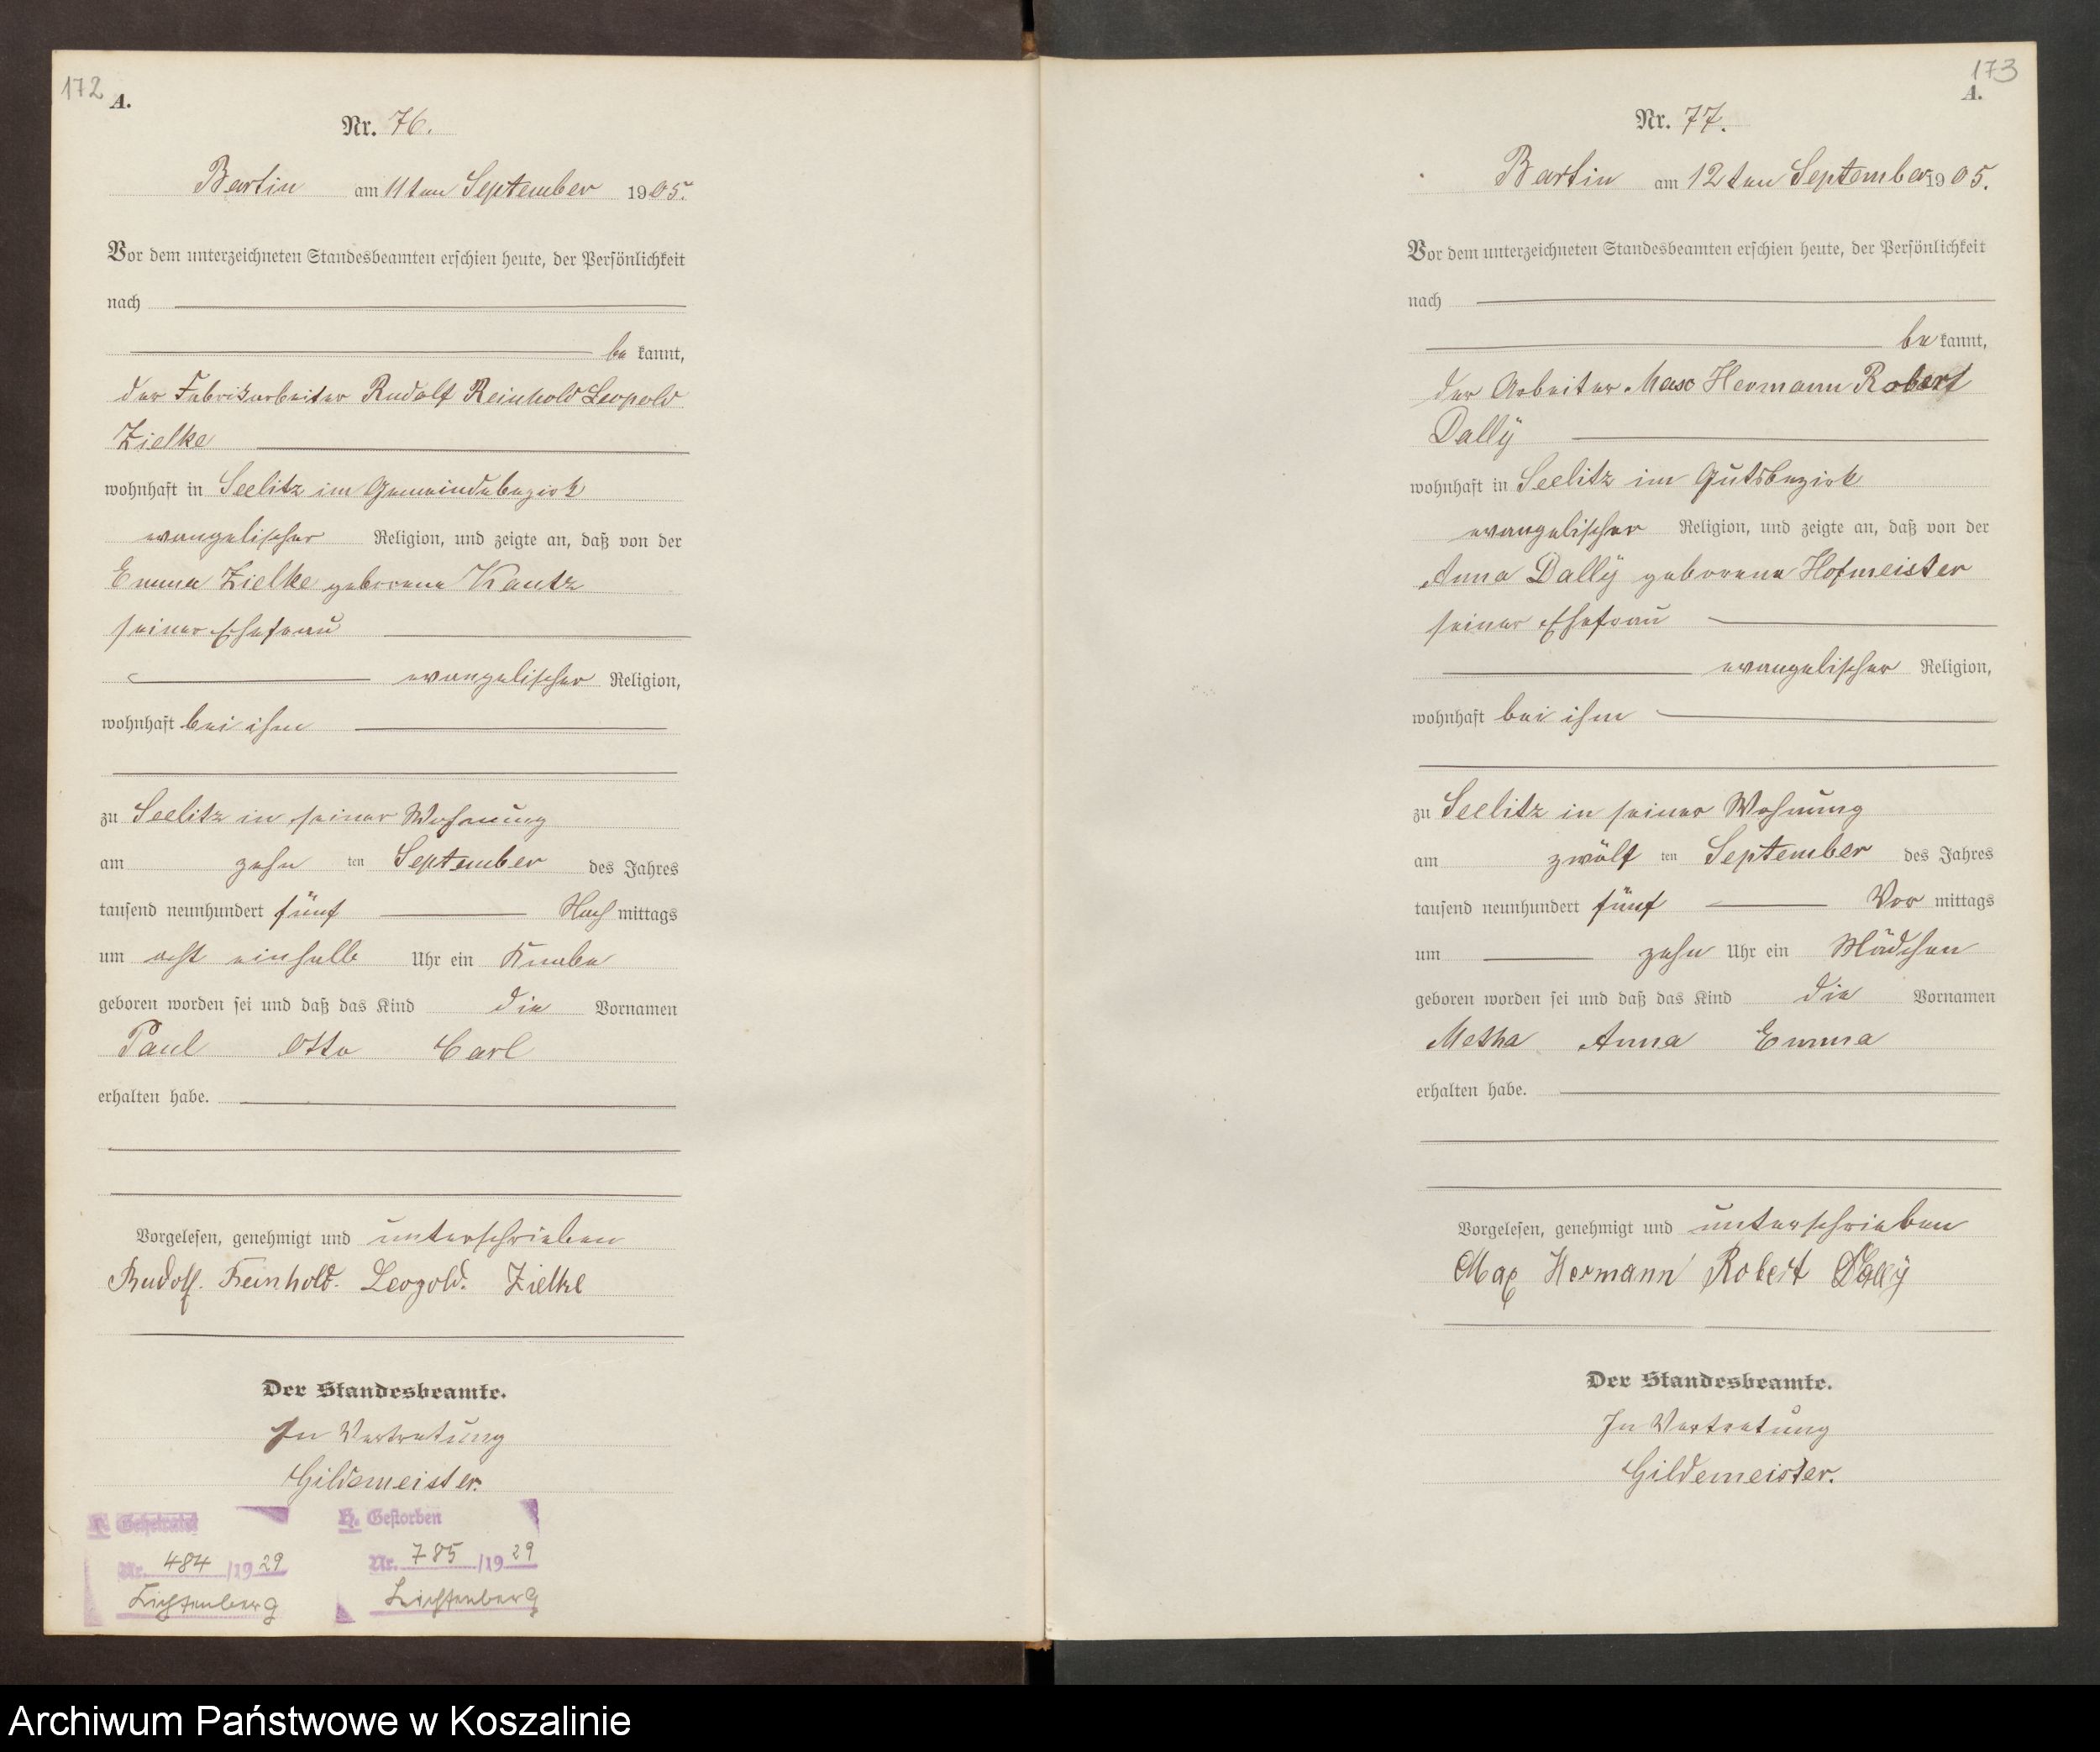 172
A.
Nr. 76.
Bartin am 11ten September 1905.
Vor dem unterzeichneten Standesbeamten erschien heute, der Persönlichkeit
nach
be kannt,
der Fabrikarbeiter Rudolf Reinhold Leopold
Zielke
wohnhaft in Seelitz im Gemeindebezirk
evangelischer Religion, und zeigte an, daß von der
Emma Zielke geborene Kautz
seiner Ehefrau
evangelischer Religion,
wohnhaft bei ihm
zu Seelitz in seiner Wohnung
am zehn ten September des Jahres
tausend neunhundert fünf Nach mittags
um acht einhalb Uhr ein Knabe
geboren worden sei und daß das Kind die Vornamen
Paul Otto Carl
erhalten habe.
Vorgelesen, genehmigt und unterschrieben
Rudolf. Reinhold. Leopold. Zielke
Der Standesbeamte.
In Vertretung
Gildemeister.
Geheiratet
Nr. 484 /1929
Lichtenberg
H. Gestorben
Nr. 785 /1929
Lichtenberg
173
A.
Nr. 77.
Bartin am 12ten September 1905.
Vor dem unterzeichneten Standesbeamten erschien heute, der Persönlichkeit
nach
be kannt,
der Arbeiter Max Hermann Robert
Dallÿ
wohnhaft in Seelitz im Gutsbezirk
evangelischer Religion, und zeigte an, daß von der
Anna Dallÿ geborene Hofmeister
seiner Ehefrau
evangelischer Religion,
wohnhaft bei ihm
zu Seelitz in seiner Wohnung
am zwölf ten September des Jahres
tausend neunhundert fünf Vor mittags
um zehn Uhr ein Mädchen
geboren worden sei und daß das Kind die Vornamen
Metha Anna Emma
erhalten habe.
Vorgelesen, genehmigt und unterschrieben
Max Hermann Robert Dallÿ
Der Standesbeamte.
In Vertretung
Gildemeister.
Archiwum Państwowe w Koszalinie